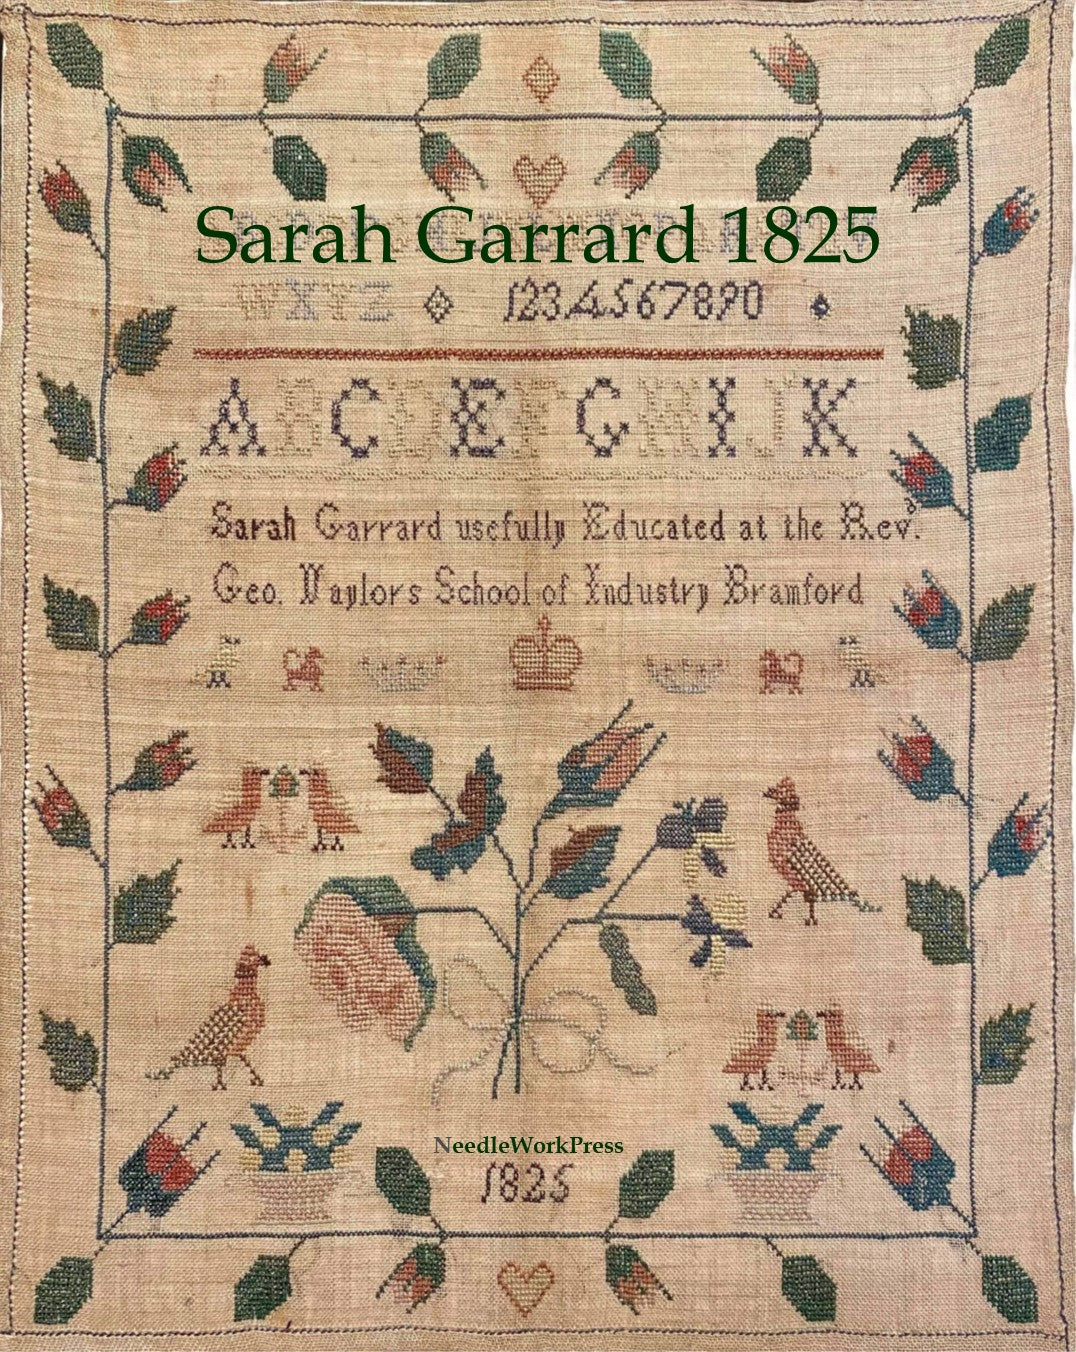 Sarah Garrard 1825
WXYZ 1234567890
A B C D E F G H I J K
Sarah Garrard usefully Educated at the Revᵈ.
Geo. Naylors School of Industry Bramford
NeedleWorkPress
1825